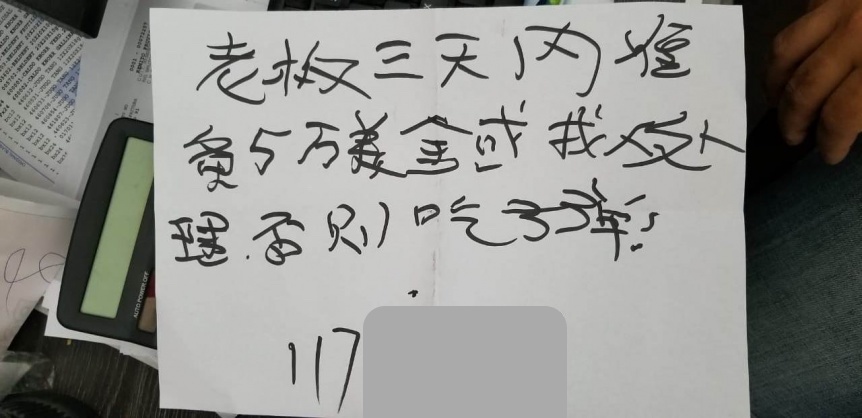 老板三天内准
备5万美金或找人处
理.否则吃子弹!
117
AUTO POWER OFF